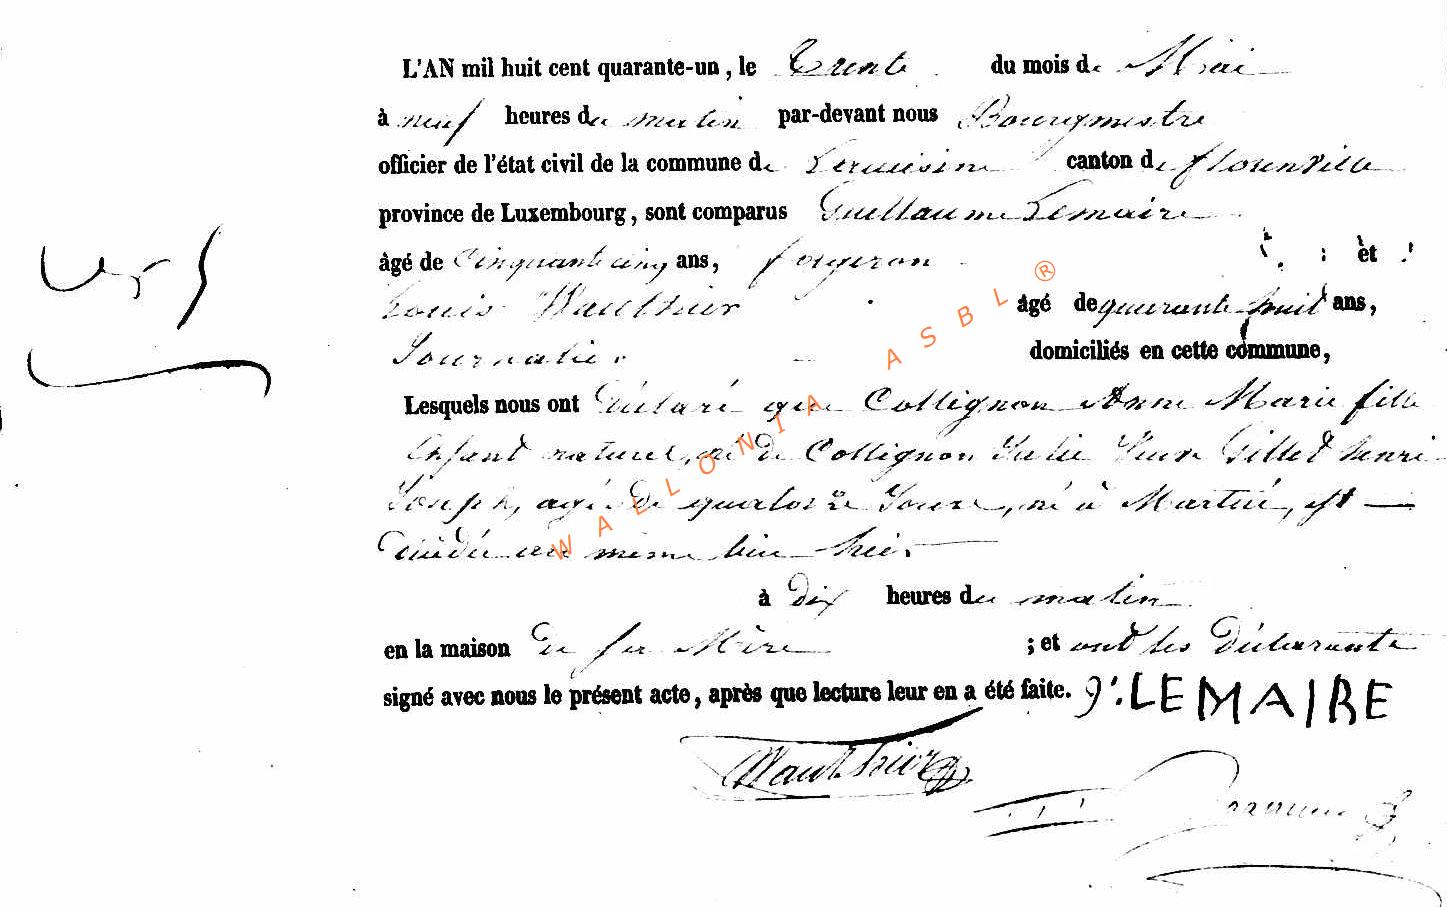 L'AN mil huit cent quarante-un, le Trente du mois de Mai
à neuf heures du matin par-devant nous Bourgmestre
officier de l'état civil de la commune de Termes canton de florenville
province de Luxembourg, sont comparus Guillaume Lemaire
âgé de Cinquante cinq ans, forgeron ; et
Louis Wauthier âgé de quarante huit ans,
Journalier domiciliés en cette commune,
Lesquels nous ont Déclaré que Collignon Anne Marie fille
Enfant naturel, né de Collignon Julie Veuve Gillet henri
Joseph, agé de quatorze Jours, né à Martué, est
décédé au même lieu hier
à dix heures du matin
en la maison de sa Mère ; et ont les Déclarants
signé avec nous le présent acte, après que lecture leur en a été faite. g. LEMAIRE
Wauthier
WALLONIA ASBL ®